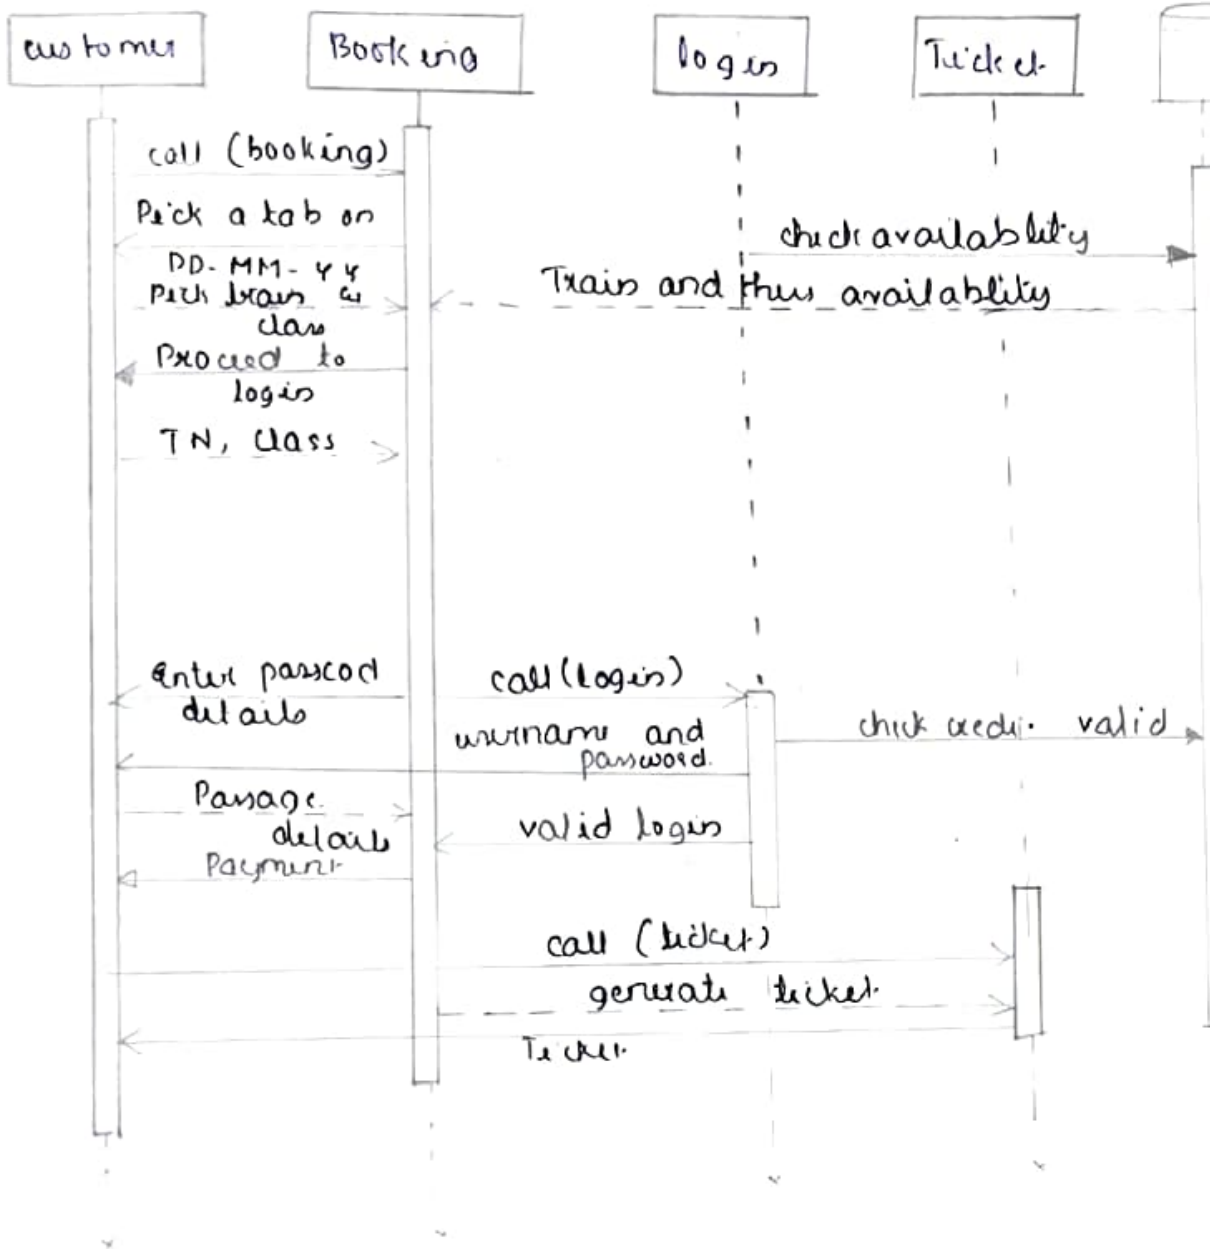 customer
Booking
login
Ticket
call (booking)
Pick a tab on
DD-MM-YY
Pick train &
class
Proceed to
login
TN, Class
check availablity
Train and thus availablity
Enter passcod
details
call (login)
username and
password.
check credi. valid
Passage
details
valid login
Payment
call (ticket)
generate ticket
Ticket